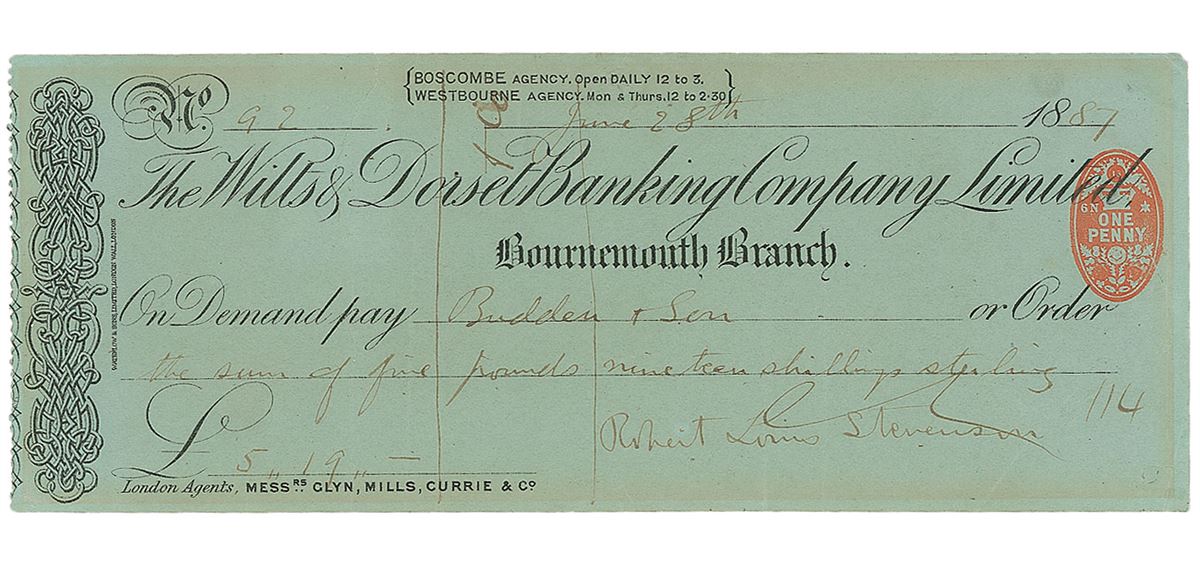 BOSCOMBE AGENCY. Open DAILY 12 to 3.
WESTBOURNE AGENCY. Mon & Thurs. 12 to 2·30
No. 92. June 28th 1887
The Wilts & Dorset Banking Company Limited,
6N ONE PENNY
Bournemouth Branch.
WATERLOW & SONS LIMITED, LONDON WALL, LONDON
On Demand pay Budden & Son or Order
the sum of five pounds nineteen shillings sterling
114
Robert Louis Stevenson
£ 5 ,, 19 ,, —
London Agents, MESSRS. GLYN, MILLS, CURRIE & Co